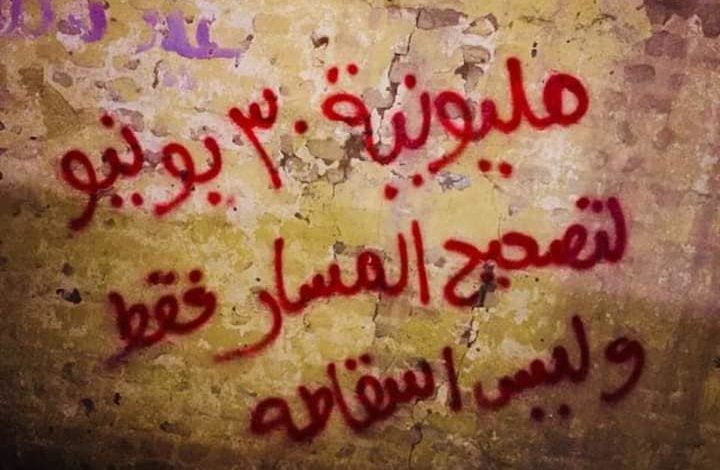 مليونية ٣٠ يونيو
لتصحيح المسار فقط
وليس اسقاطه